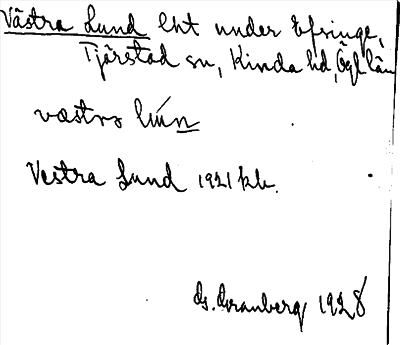 Västra Lund lht under Efsinge,
Tjärstad sn, Kinda hd, Ögl län
væstrɔ lún
Vestra Lund 1921 kk.
Granberg 1928